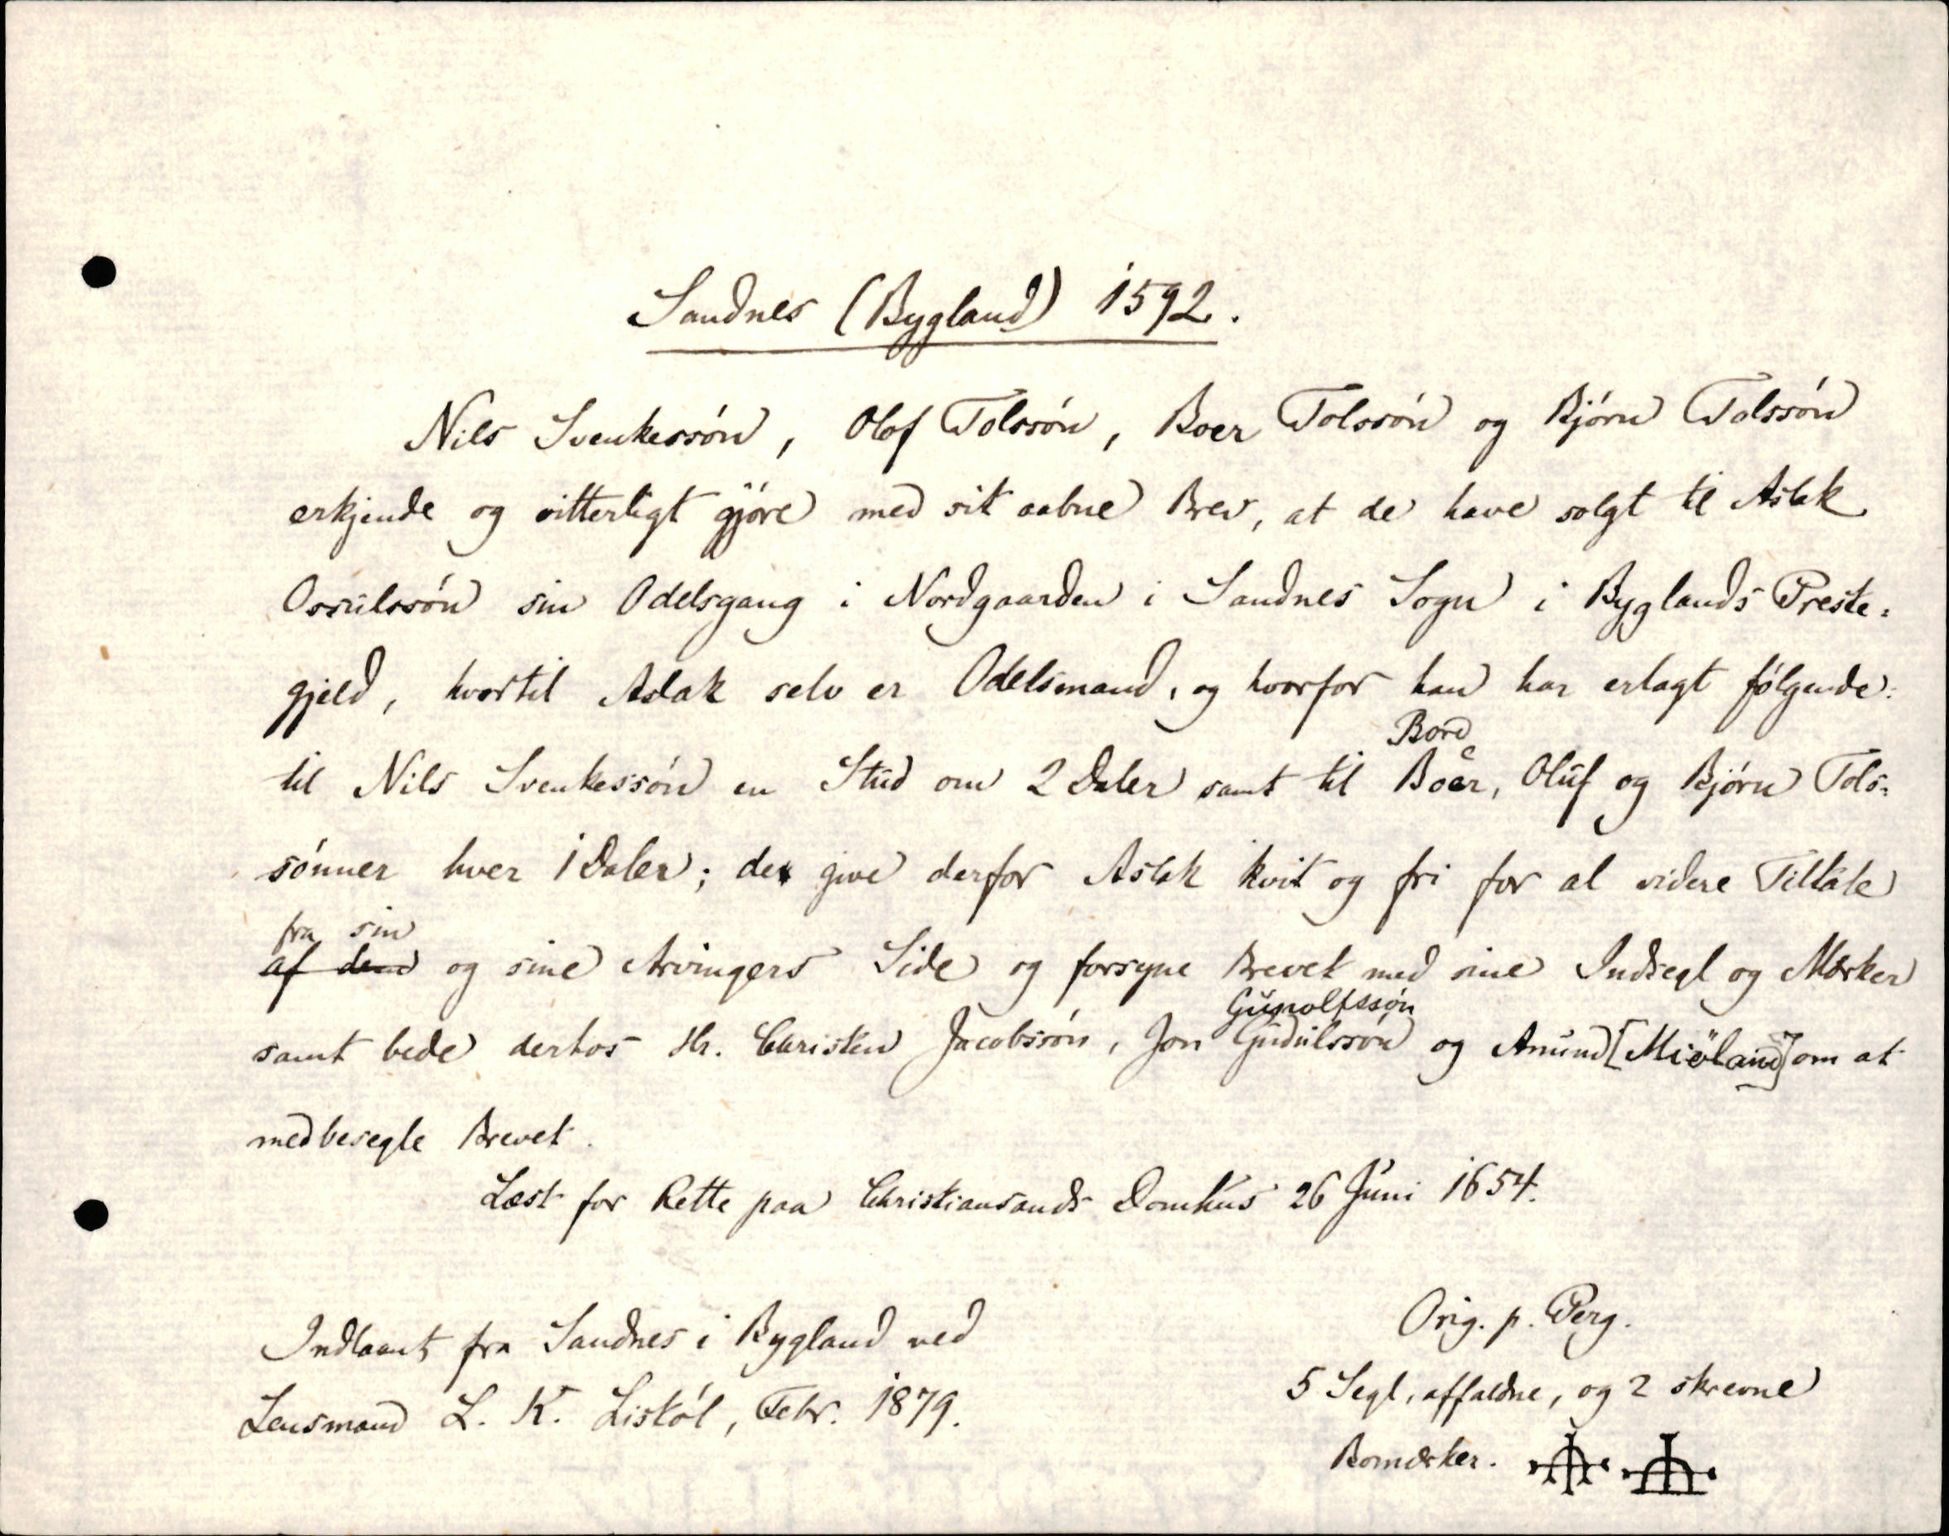 Sandnes (Bygland) 1592.
Nils Svenkessón, Olof Tolssón, Boer Tolssón og Bjórn Tolssón
erkjende og vitterligt gjóre med sit aabne Brev, at de have solgt til Aslak
Ossulssón sin Odelsgang i Nordgaarden i Sandnes Sogn i Byglands Preste=
gjeld, hvortil Aslak selv er Odelsmand, og hvorfor han har erlagt fólgende:
Bord
til Nils Svenkessón en Stud om 2 Daler samt til Boer, Oluf og Bjórn Tols=
sónner hver 1 Daler; de give derfor Aslak kvit og fri for al videre Tiltale
fra sin
af dem og sine Arvingers Side og forsyne Brevet med sine Indsegl og Mærker
Gunolfssón
samt bede derhos Hr. Christen Jacobssón, Jon Gudulssón og Anund [Miöland] om at
medbesegle Brevet.
Læst for Rette paa Christiansands Domhus 26 Juni 1654.
Indlaant fra Sandnes i Bygland ved
Lensmand L. K. Liskól, Febr. 1879.
Orig. p. Perg.
5 Segl, affaldne, og 2 skrevne
Bomærker.